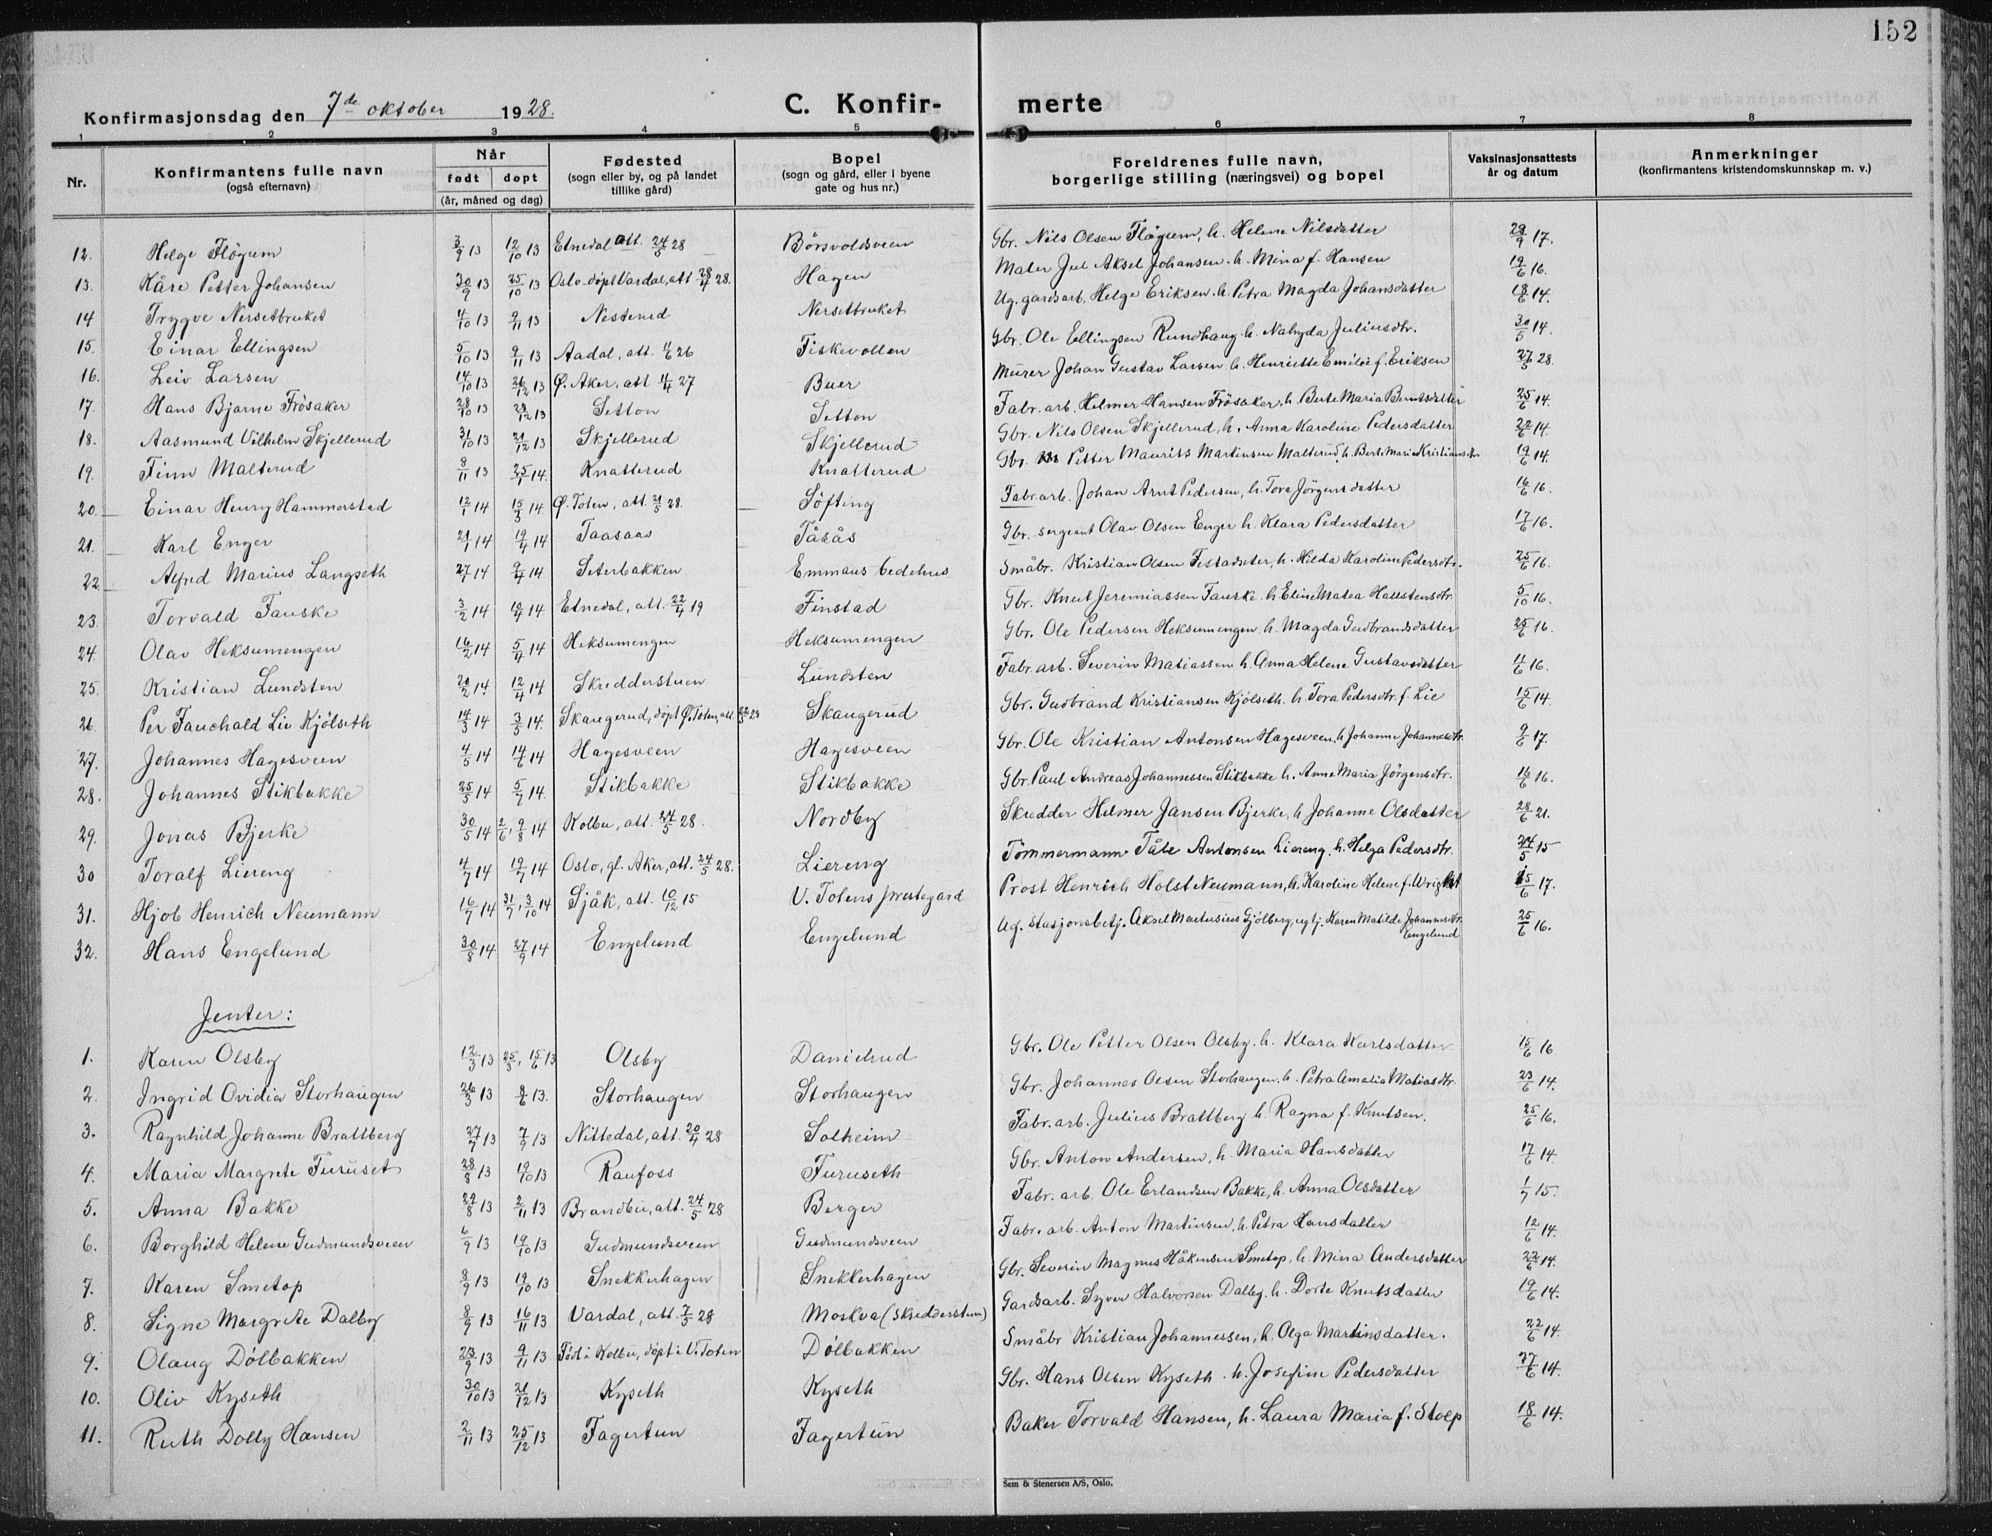 152
Konfirmasjonsdag den 7de oktober 1928.
C. Konfir- merte
1 2 3 4 5 6 7 8
Nr.
Konfirmantens fulle navn
(også efternavn)
Når
født døpt
(år, måned og dag)
Fødested
(sogn eller by, og på landet
tillike gård)
Bopel
(sogn og gård, eller i byene
gate og hus nr.)
Foreldrenes fulle navn,
borgerlige stilling (næringsvei) og bopel
Vaksinasjonsattests
år og datum
Anmerkninger
(konfirmantens kristendomskunnskap m. v.)
12. Helge Fløgum 3/9 13 12/10 13 Etnedal att. 24/5 28 Børsvoldsveen Gbr. Nils Olsen Fløgum, h. Helene Nilsdatter 29/9 17.
13. Kåre Petter Johansen 30/9 13 25/10 13 Oslo-døpt Vardal, att 28/4 28. Hagen Maler Jul Aksel Johansen. h. Mina f. Hansen 19/6 16.
14 Trygve Nersetbruket 4/10 13 9/11 13 Nesterud Nersetbruket Ug. gardsarb. Helge Eriksen. h. Petra Magda Johansdatter 18/6 14.
15. Einar Ellingsen 5/10 13 9/11 13 Aadal, att. 4/6 26 Fiskevollen Gbr. Ole Ellingsen Rundhaug. h. Nahyda Juliusdtr. 30/5 14.
16. Leiv Larsen 14/10 13 26/12 13 Ø. Aker, att 11/4 27 Buer Murer Johan Gustav Larsen h. Henriette Emilie f. Eriksen 27/5 28
17. Hans Bjarne Frøsaker 28/10 13 28/12 13 Setton Setton Fabr. arb. Helmer Hansen Frøsaker, h. Berte Maria Berntsdatter 25/6 14.
18. Aasmund Vilhelm Skjellerud 31/10 13 21/12 13 Skjellerud Skjellerud Gbr. Nils Olsen Skjellerud, h. Anna Karoline Pedersdatter 22/6 14.
19. Finn Malterud 8/11 13 25/1 14. Knatterud Knatterud Gbr. Petter Maurits Martinsen Malterud, h. Berte Marie Kristiansdtr. 19/6 14.
20. Einar Henry Hammerstad 12/1 14 15/3 14. Ø. Toten, att. 21/5 28. Søfting Fabr. arb. Johan Arnt Pedersen, h. Tora Jørgensdatter 16/6 16.
21. Karl Enger 21/1 14 19/4 14 Taasaas Tåsås Gbr. sergeant Olav Olsen Enger h. Klara Pedersdatter 17/6 16.
22. Alfred Marius Langseth 27/1 14 9/4 14 Seterbakken Emmaus bedehus Småbr. Kristian Olsen Festadseter, h. Hilda Karoline Pedersdtr. 25/6 16.
23. Torvald Fauske 3/2 14 10/4 14 Etnedal, att. 22/4 19 Finstad Gbr. Knut Jeremiassen Fauske. h. Eline Matea Hallstensdtr. 5/10 16.
24. Olav Heksumengen 16/2 14 5/4 14 Heksumengen Heksumengen Gbr. Ole Pedersen Heksumengen. h. Magda Gudbrandsdatter 25/6 16.
25. Kristian Lundsten 20/2 14 12/4 14 Skredderstuen Lundsten Fabr. arb. Severin Matiassen h. Anna Helene Gustavsdatter 4/6 16.
26. Per Fauchald Lie Kjølseth 14/3 14 3/5 14. Skaugerud, døpt Ø. Toten, att 22/5 28 Skaugerud Gbr. Gudbrand Kristiansen Kjølseth. h. Tora Pedersdtr. f. Lie 15/6 14.
27. Johannes Hagesveen 4/5 14 14/6 14 Hagesveen Hagesveen Gbr. Ole Kristian Antonsen Hagesveen, h. Johanne Johannesdtr. 9/6 17.
28. Johannes Stikbakke 25/5 14 5/7 14. Stikbakke Stikbakke Gbr. Paul Andreas Johannessen Stikbakke h. Anne Maria Jørgensdtr. 16/6 16.
29. Jonas Bjerke 30/5 14 2/6, 9/8 14 Kolbu, att. 24/5 28. Nordby Skredder Helmer Jansen Bjerke, h. Johanne Olsdatter 28/6 21.
30 Toralf Liereng 4/7 14 19/7 14 Oslo, gl. Aker, att. 24/5 28. Liereng Tømmermann Tåle Antonsen Liereng. h. Helga Pedersdtr. 24/5 15
31. Hjob Henrich Neumann 16/7 14 31/7, 3/10 14 Sjåk, att. 10/12 15 V. Totens prestegard Prost Henrich Holst Neumann, h. Karoline Helene f. Wright 15/6 17.
32. Hans Engelund 30/8 14 27/9 14 Engelund Engelund Ug. Stasjonsbetj. Aksel Martusius Gjølberg, ug tj. Karen Matilde Johannesdtr. Engelund 25/6 16.
Jenter:
1. Karen Olsby 12/3 13 25/3, 15/6 13 Olsby Danielrud Gbr. Ole Petter Olsen Olsby. h. Klara Karlsdatter 15/6 16
2. Ingrid Ovidia Storhaugen 26/3 13 8/6 13. Storhaugen Storhaugen Gbr. Johannes Olsen Storhaugen. h. Petra Amalia Matiasdtr. 23/6 14.
3. Ragnhild Johanne Brattberg 27/7 13 7/9 13 Nittedal, att. 20/4 28 Solheim Fabr. arb. Julius Brattberg h. Ragna f. Knutsen. 25/6 16.
4. Maria Margrete Furuset 28/8 13 19/10 13 Raufoss Furuseth Gbr. Anton Andersen, h. Maria Hansdatter 17/6 14.
5. Anna Bakke 29/8 13 2/11 13 Brandbu, att. 24/5 28 Berger Fabr. arb. Ole Erlandsen Bakke, h. Anna Olsdatter 1/7 15.
6. Borghild Helene Gudmundsveen 6/9 13 19/10 13 Gudmundsveen Gudmundsveen Fabr. arb. Anton Martinsen, h. Petra Hansdatter 12/6 14.
7. Karen Smetop 8/9 13 19/10 13 Snekkerhagen Snekkerhagen Gbr. Severin Magnus Håkensen Smetop, h. Mina Andersdatter 22/6 14.
8. Signe Margrete Dalby 8/9 13 16/11 13 Vardal, att. 7/5 28 Moskva (Skredderstuen) Gardsarb. Syver Halvorsen Dalby. h. Dorte Knutsdatter 19/6 14.
9. Olaug Dølbakken 23/9 13 9/11 13 Født i Kolbu, døpt i V. Toten Dølbakken Småbr Kristian Johannessen, h. Olga Martinsdatter. 22/6 14.
10. Oliv Kyseth 30/10 13 21/12 13 Kyseth Kyseth Gbr. Hans Olsen Kyseth. h. Josefine Pedersdatter 27/6 14.
11. Ruth Dolly Hansen 2/11 13 25/12 13 Fagertun Fagertun Baker Torvald Hansen, h. Laura Maria f. Stolp 18/6 14.
Sem & Stenersen A/S, Oslo.